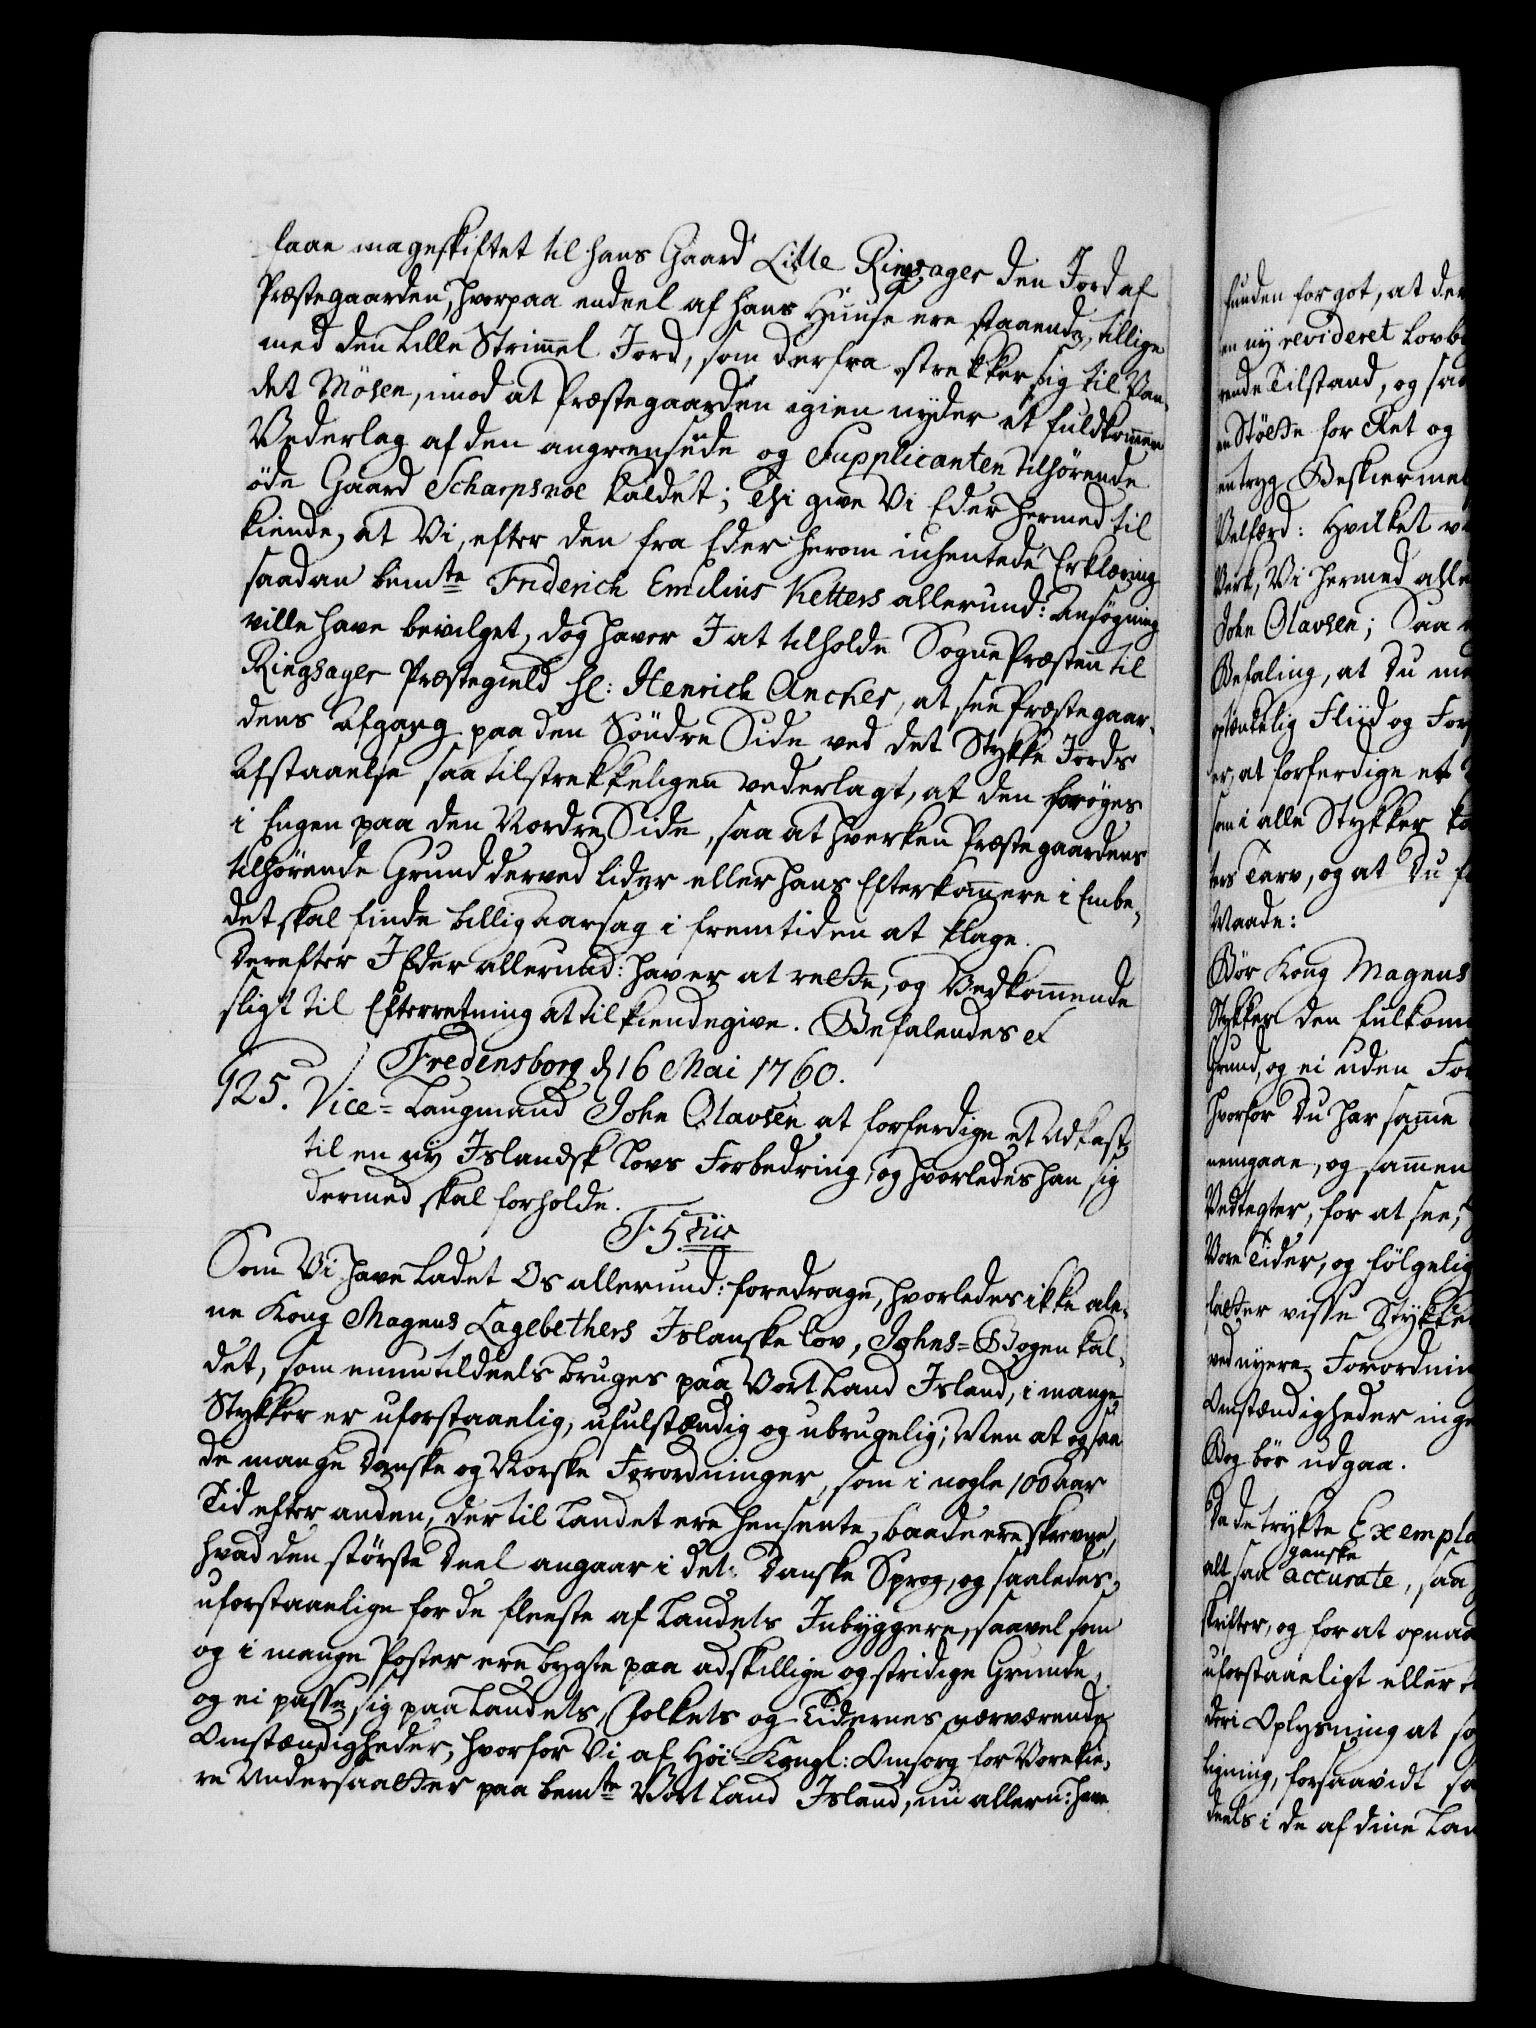 faae mageskiftet til hans Gaard Lille Ringsager den Jord af
Præstegaarden, hvorpaa endeel af hans Huuse ere staaende, tillige
med den lille Strimmel Jord, som derfra strekker sig til Van-
det Mösen, imod at Præstegaarden igien nyder et fuldkommen
Vederlag af den angrensende og Supplicanten tilhörende
öde Gaard Scharpsnoe kaldet; Thi give Vi Eder hermed til
kiende, at Vi, efter den fra Eder herom inhentede Erklæring
saadan bemte Friderich Emilius Ketters allerund: Ansögning
ville have bevilget, dog haver I at tilholde SognePræsten til
Ringsager Præstegield Hr: Henrich Ancher, at see Præstegaar-
dens Afgang paa den Söndre Side ved det Stykke Jords
Afstaaelse saa tilstrekkeligen vederlagt, at den foröges
i Engen paa den Nordre Side, saa at hverken Præstegaardens
tilhörende Grund derved lider eller hans Efterkommere i Embe-
det skal finde billig Aarsag i fremtiden at klage.
Derefter I Eder allerund: haver at rette, og Vedkommende
sligt til Efterretning at tilkiendegive. Befalendes &
Fredensborg d 16 Mai 1760.
125. Vice-Laugmand John Olavsen at forferdige et Udkast
til en ny Islandsk Lovs Forbedring, og hvorledes han sig
dermed skal forholde.
F. 5tus
Som Vi have Ladet Os allerund: foredrage, hvorledes ikke ale-
ne Kong Magnus Lagebethers Islanske lov, Johns-Bogen kal-
det, som ennu tildeels bruges paa Vort Land Island, i mange
Stykker er uforstaaelig, ufulstændig og ubrugelig; Men at og saa
de mange Danske og Norske Forordninger, som i nogle 100 Aar
Tid efter anden, der til Landet ere hensente, baade ere skrevne,
hvad den störste Deel angaar i det Danske Sprog, og saaledes
uforstaaelige for de fleeste af Landets Inbyggere, saavel som
og i mange Poster ere bygte paa adskillige og stridige Grunde,
og ei passe sig paa Landets, Folkets og Tidernes nærværende
Omstændigheder, hvorfor Vi af Höi-Kongl: Omsorg for Vore kie-
re Undersaatter paa bemte Vort Land Island, nu allern: have
funden for got, at der
en ny revideret Lovbo
rende Tilstand, og saa
en Stötte for Ret og
en tryg Beskiermel
Velfærd: Hvilket
Verk, Vi hermed aller
John Olavsen; Saa
Befaling, at Du me
optænkelig Fliid og For
er, at forferdige et
som i alle Stykker
ters Tarv, og at Du
Maade:
Bör Kong Magnus
Stykker den fulkom
Grund, og ei uden For
hvorfor Du har samme
nemgaae, og sammen
Vedtegter, for at see,
Vore Tider, og fölgelig
fatter visse Stykker
ved nyere Forordnin
Omstændigheder inge
Bog bör udgaa.
Da de trykte Exempla
ganske
alt saa accurate, saa
skrifter, og for at opnaa
uforstaaeligt eller
deri Oplysning at sö
ligning, forsaavidt
deels i de af dine Lan